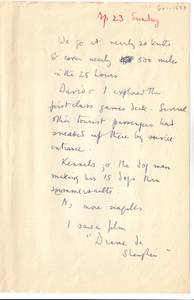 Ap 23 Sunday
We go at nearly 20 knots
& cover nearly 500 miles
in the 25 hours
David & I explored the
first class games deck. Several
other tourist passengers had
sneaked up there by service
entrance.
Kennels, & the dog man
making his 15 dogs turn
summersaults
No more seagulls
I saw a film
"Drame de
Shanghai"